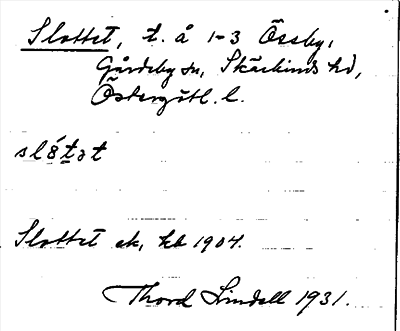 Slottet, t. å 1-3 Össby,
Gårdeby sn, Skärkinds hd,
Östergötl. l.
slótət
Slottet ek, hb 1904.
Thord Lindell 1931.